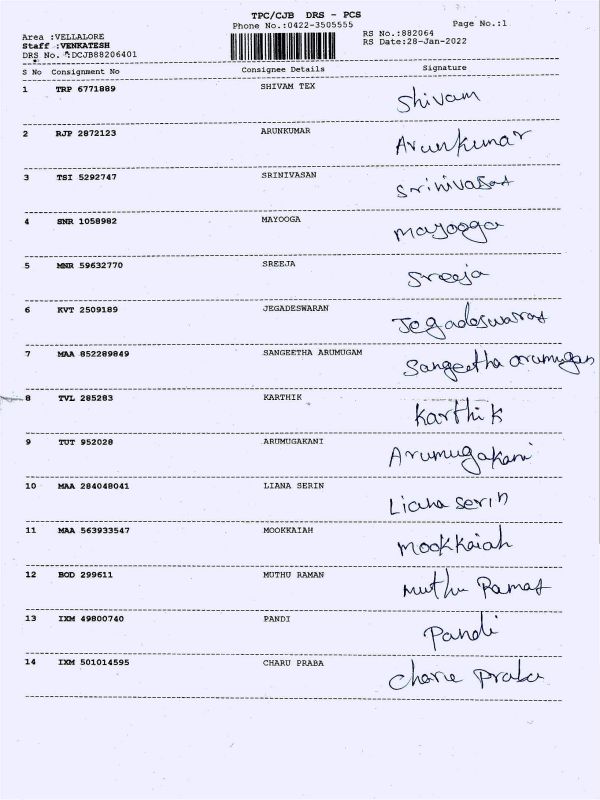 TPC/CJB DRS - PCS
Phone No.:0422-3505555
Page No.:1
Area :VELLALORE
RS No.:882064
Staff :VENKATESH
RS Date:28-Jan-2022
DRS No. :DCJB88206401
S No Consignment No Consignee Details Signature
1 TRP 6771889 SHIVAM TEX Shivam
2 RJP 2872123 ARUNKUMAR Arunkumar
3 TSI 5292747 SRINIVASAN Srinivasan
4 SNR 1058982 MAYOOGA Mayooga
5 MNR 59632770 SREEJA Sreeja
6 KVT 2509189 JEGADESWARAN Jegadeswaran
7 MAA 852289849 SANGEETHA ARUMUGAM Sangeetha arumugam
8 TVL 285283 KARTHIK Karthik
9 TUT 952028 ARUMUGAKANI Arumugakani
10 MAA 284048041 LIANA SERIN Liana Serin
11 MAA 563933547 MOOKKAIAH Mookkaiah
12 BOD 299611 MUTHU RAMAN Muthu Raman
13 IXM 49800740 PANDI Pandi
14 IXM 501014595 CHARU PRABA Charu Praba